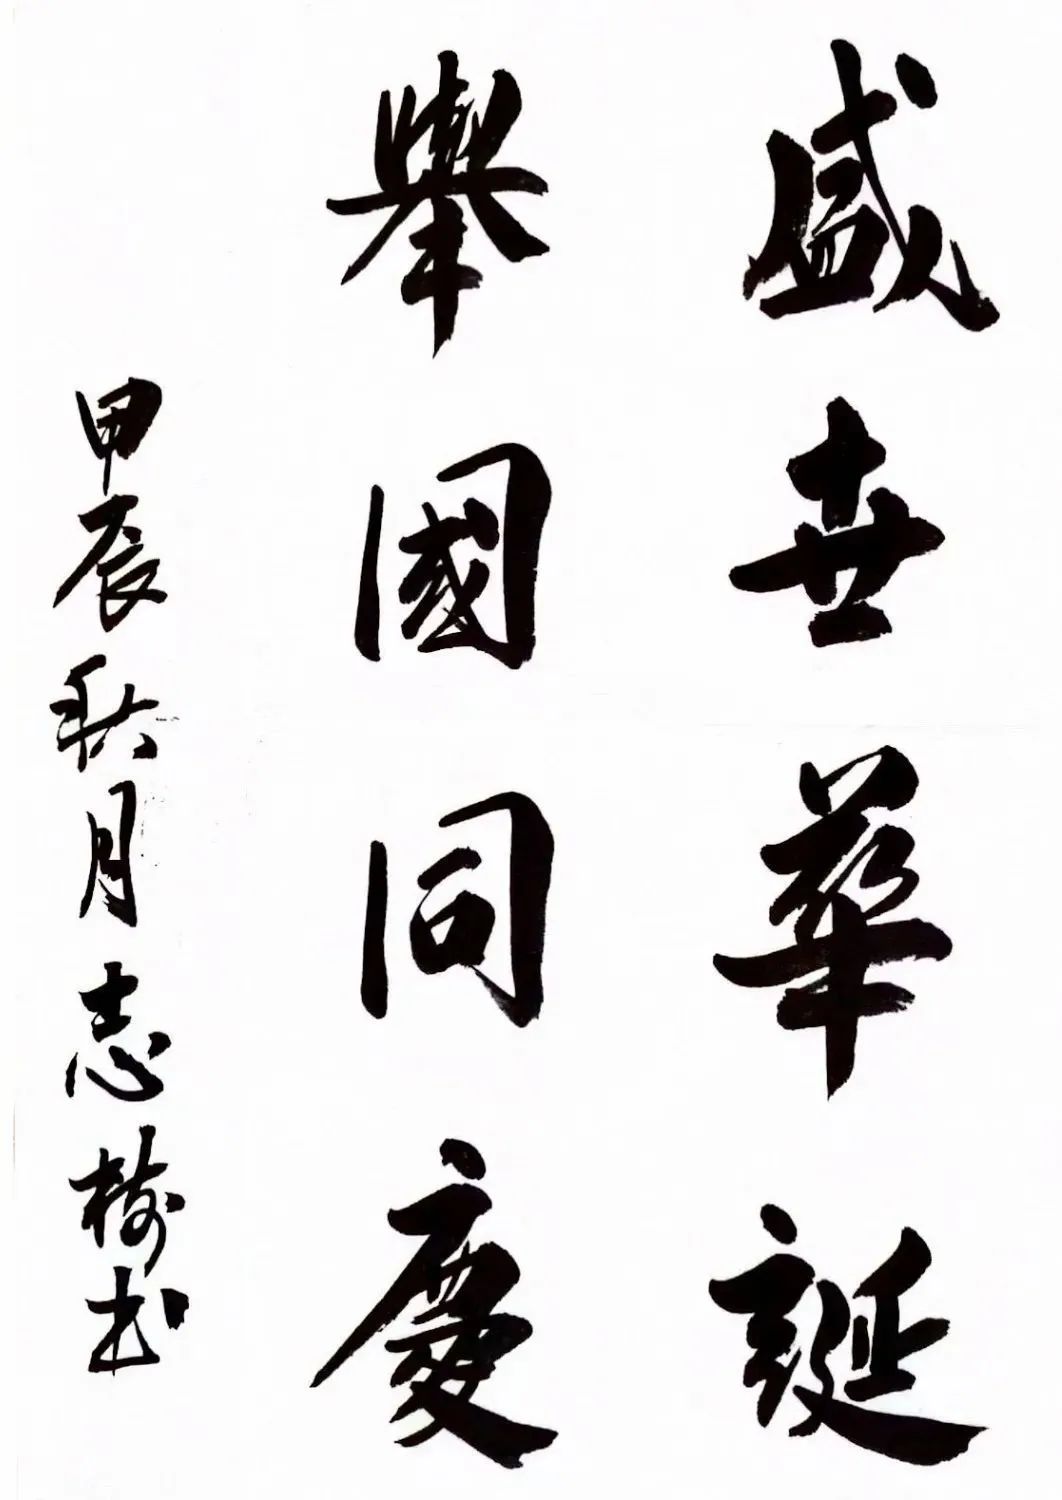 盛世華誕
舉國同慶
甲辰秋月志樹书